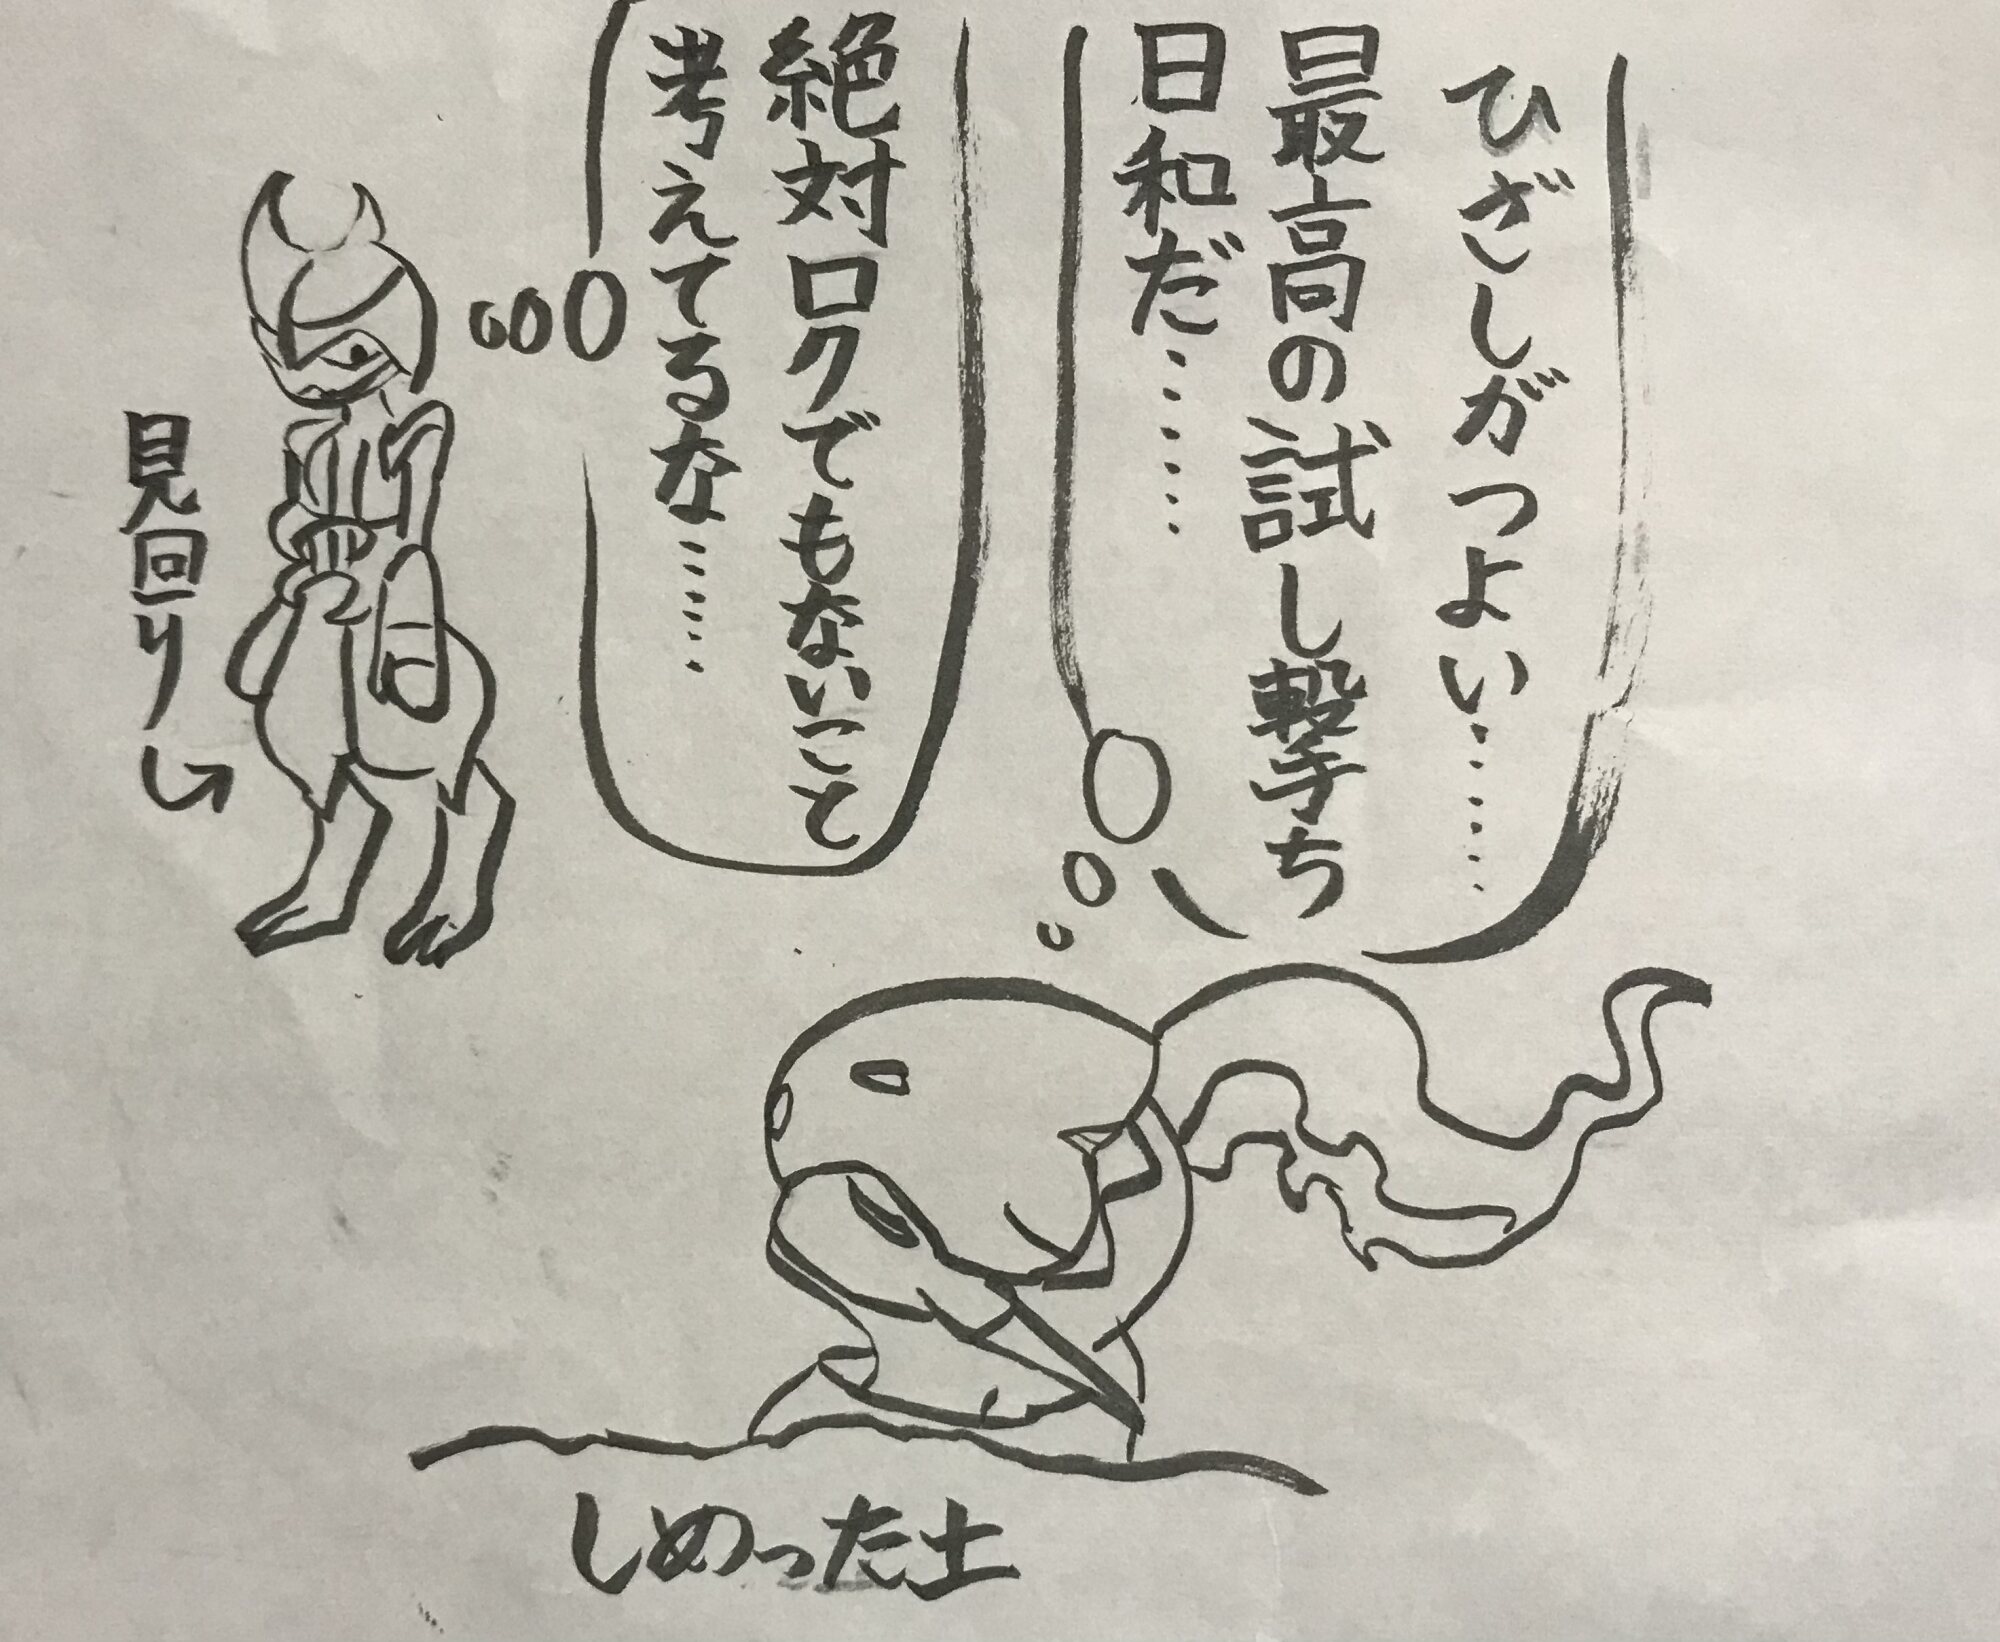 ひざしがつよい……
最高の試し撃ち
日和だ……
絶対ロクでもないこと
考えてるな……
見回り
しめった土